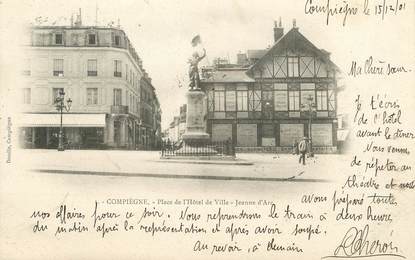 Compiègne le 15/12/01
Ma chère sœur.
Je t'écris
de l'hôtel
avant le dîner
Nous venons
de répéter au
théâtre et nous
avons préparé toutes
nos affaires pour ce soir. Nous reprendrons le train à deux heures
du matin après la représentation et après avoir soupé.
au revoir, à demain
Bouclie, Compiègne
COMPIÈGNE. - Place de l'Hôtel de Ville - Jeanne d'Arc